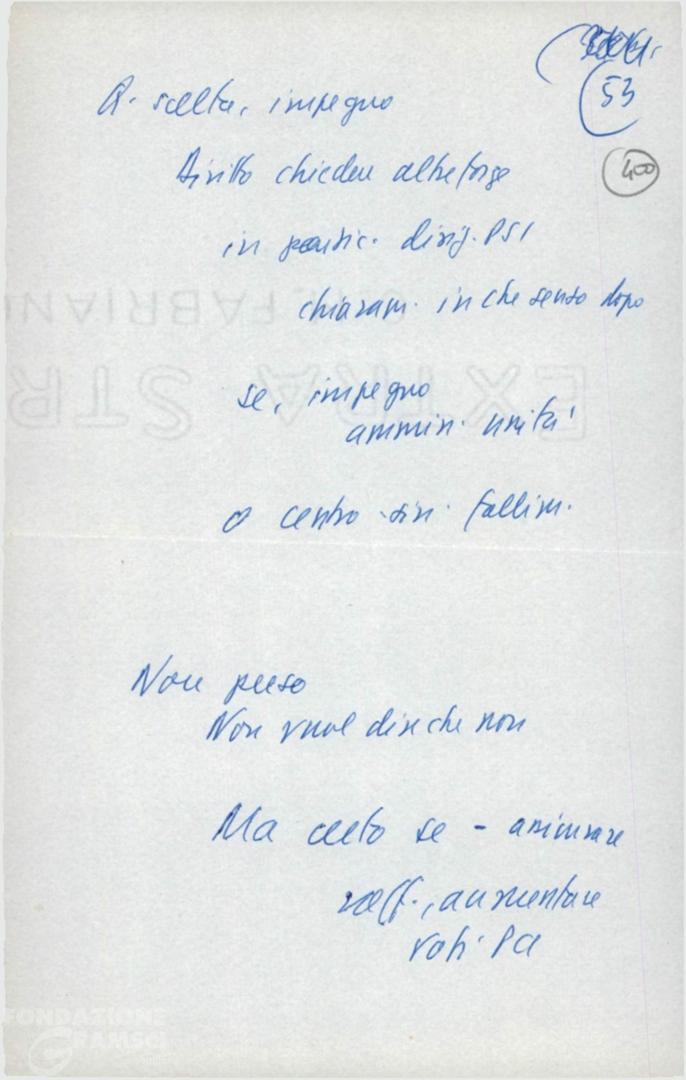 53
400
R. scelta, impegno
Diritto chiedere altre forze
in partic. dirig. PSI
chiaram. in che senso dopo
se, impegno
ammin. unità
o centro-sin. fallim.
Non preso
Non vuol dire che non
Ma certo se - assicurare
raff., aumentare
voti PCI
FABRIANO
EXTRA STR
FONDAZIONE
GRAMSCI